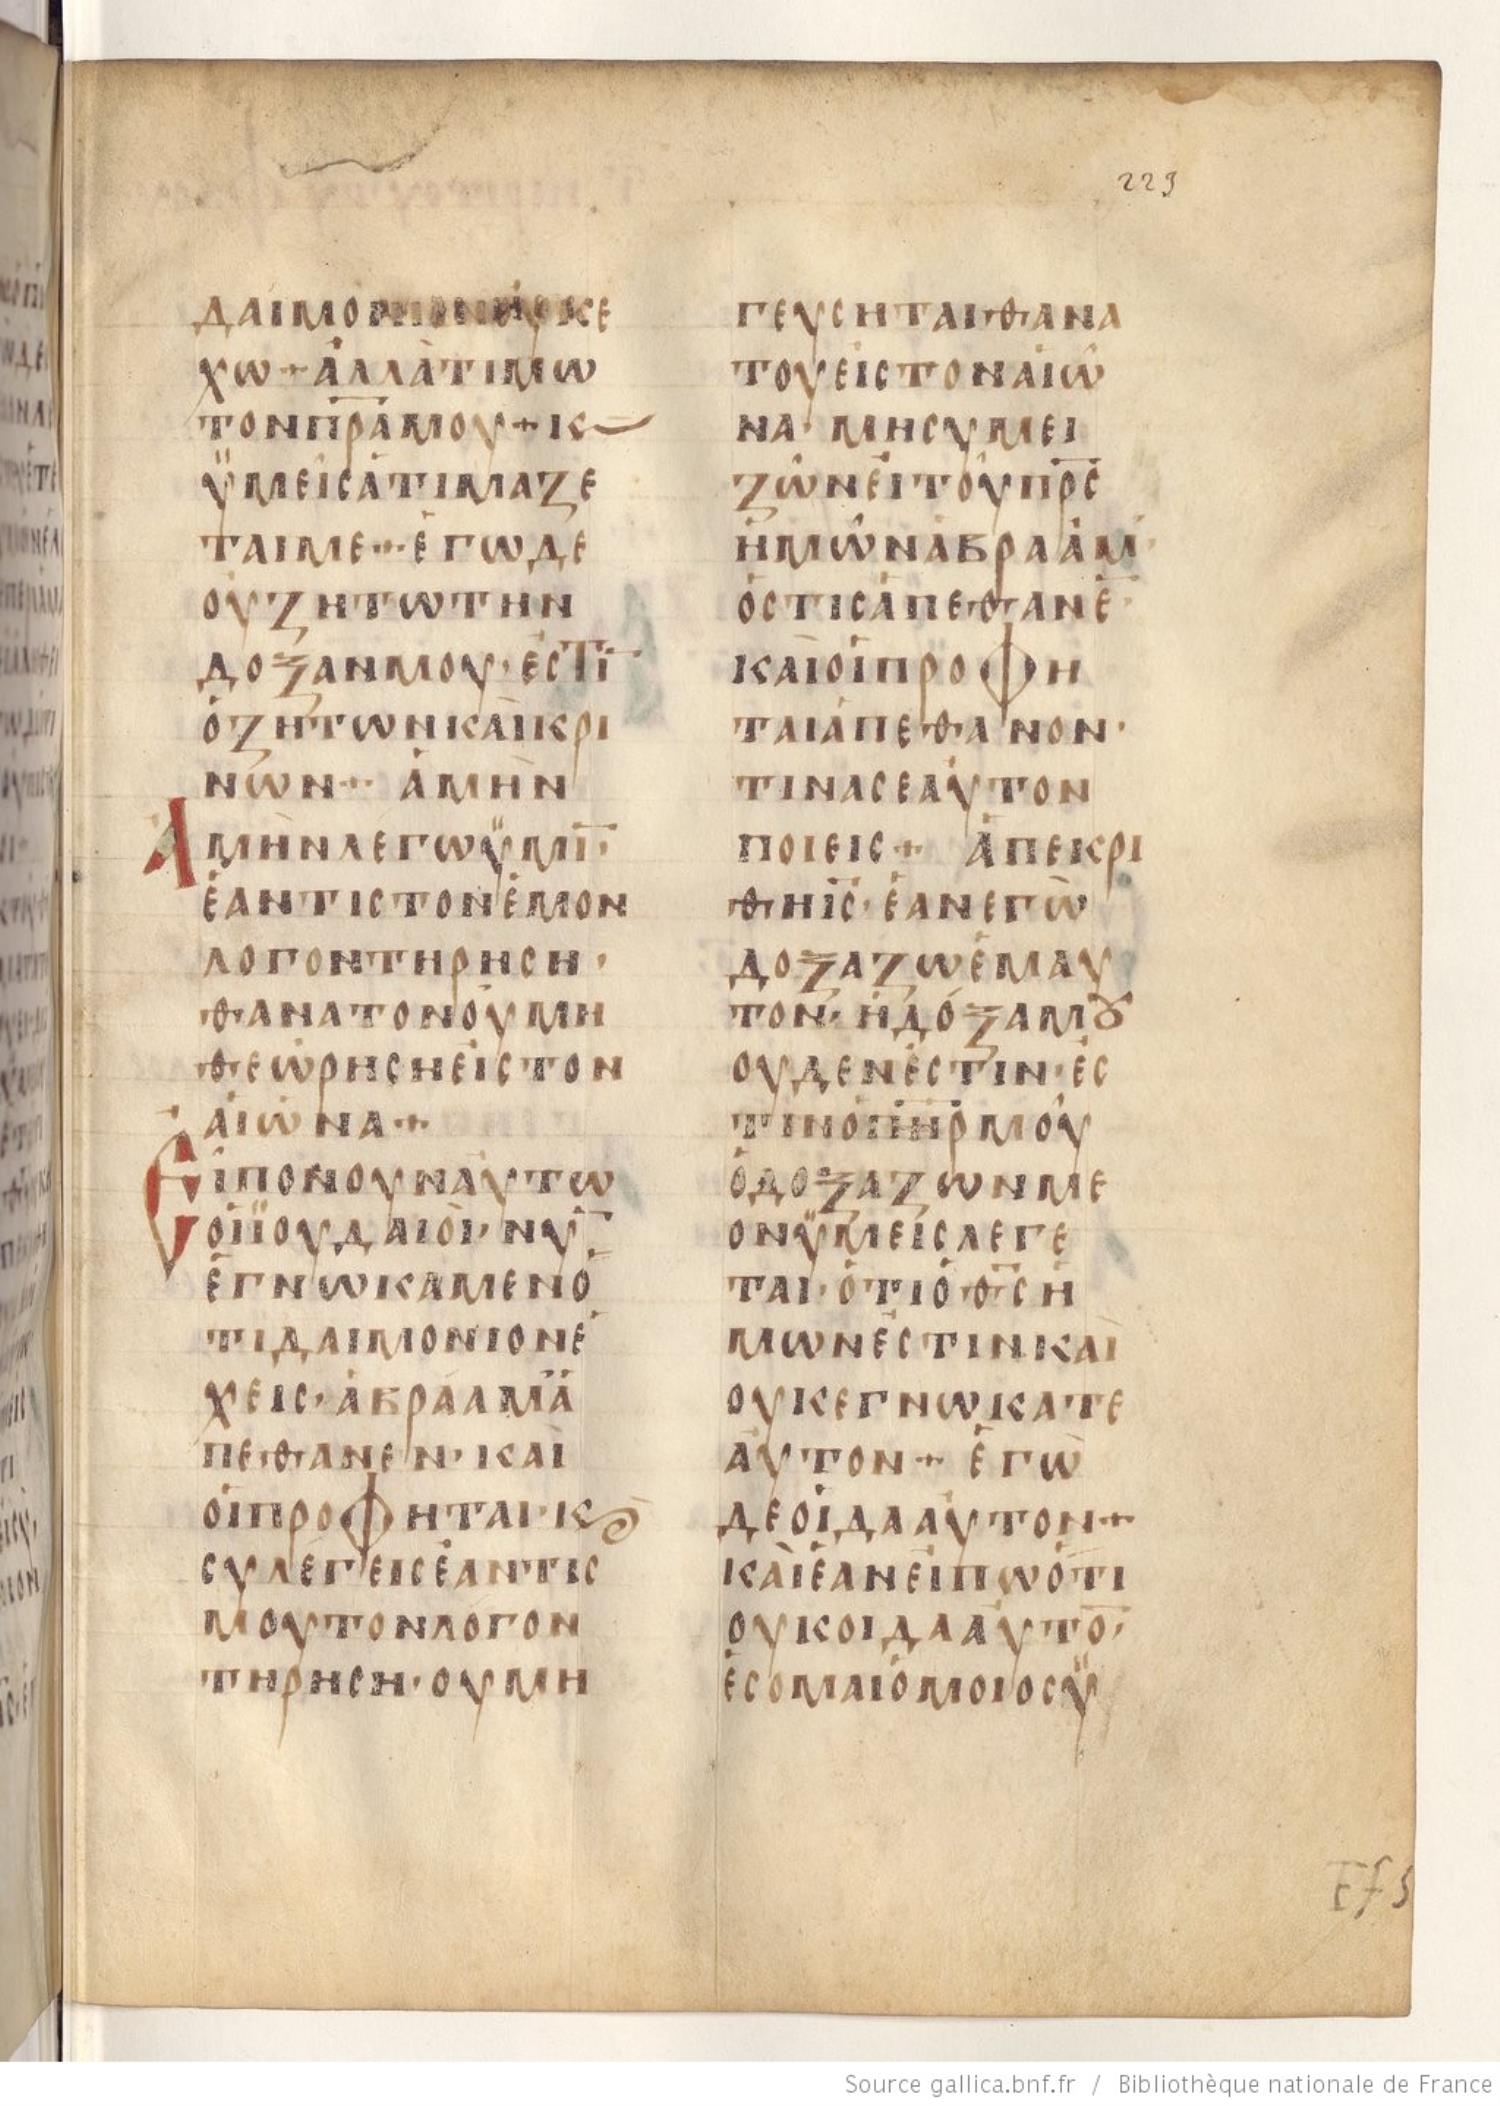 229
ΔΑΙΜΟΝΙΟΝΟΥΚΕ
ΧΩ+ἀΛΛὰΤΙΜΩ
ΤΟΝΠ̅Ρ̅Α̅ΜΟΥ+Κ
ΫΜΕῖCἀΤΙΜΑΖΕ
ΤΑΙΜΕ+ἐΓΩΔΕ
ΟΥΖΗΤΩΤΗΝ
ΔΟΞΑΝΜΟΥ·ἐCΤΙ̅
ὁΖΗΤΩΝΚΑὶΚΡΙ
ΝΩΝ+ἀΜὴΝ
ΑΜὴΝΛΕΓΩΫΜΙ̅·
ἐΑΝΤΙCΤΟΝἐΜΟΝ
ΛΟΓΟΝΤΗΡΗCΗ·
ΘΑΝΑΤΟΝΟὐΜΗ
ΘΕΩΡΗCΗΕἰCΤΟΝ
ΑἰῶΝΑ+
ΕἶΠΟΝΟΥΝΑὐΤΩ
ΟἱΪΟΥΔΑΙΟΙ·ΝΥ̅
ἐΓΝΩΚΑΜΕΝὅ
ΤΙΔΑΙΜΟΝΙΟΝἔ
ΧΕΙC·ἀΒΡΑΑΜἀ
ΠΕΘΑΝΕΝ·ΚΑὶ
ΟἱΠΡΟΦΗΤΑΙ·Κ
CΥΛΕΓΕΙCἐΑΝΤΙC
ΜΟΥΤΟΝΛΟΓΟΝ
ΤΗΡΗCΗ·ΟΥΜΗ
ΓΕΥCΗΤΑΙΘΑΝΑ
ΤΟΥΕἰCΤΟΝΑἰῶ
ΝΑ·ΜΗCΥΜΕΙ
ΖΩΝΕἶΤΟῦΠ̅Ρ̅C̅
ἡΜῶΝἀΒΡΑἀΜ·
ὅCΤΙCἀΠΕΘΑΝΕ̅·
ΚΑὶΟἱΠΡΟΦΗ
ΤΑΙἀΠΕΘΑΝΟΝ·
ΤΙΝΑCΕΑὐΤΟΝ
ΠΟΙΕΙC+ἀΠΕΚΡΙ
ΘΗΙ̅C̅·ἐΑΝΕΓῶ
ΔΟΞΑΖΩἐΜΑΥ
ΤΟΝ·ἡΔόΞΑΜȣ
ΟΥΔΕΝἐCΤΙΝ·ἐC
ΤΙΝὁΠ̅Η̅Ρ̅ΜΟῦ
ὁΔΟΞΑΖΩΝΜΕ
ΟΝΫΜΕῖCΛΕΓΕ
ΤΑΙ·ὅΤΙὁΘ̅C̅ἡ
ΜΩΝἐCΤΙΝΚΑὶ
ΟΥΚΕΓΝΩΚΑΤΕ
ΑὐΤΟΝ+ἐΓὼ
ΔΕΟἶΔΑΑὐΤΟΝ+
ΚΑὶἐΑΝΕἴΠΩὅΤΙ
ΟΥΚΟΙΔΑΑὐΤΟ̅·
ἔCΟΜΑΙὅΜΟΙΟCΫ
Source gallica.bnf.fr / Bibliothèque nationale de France